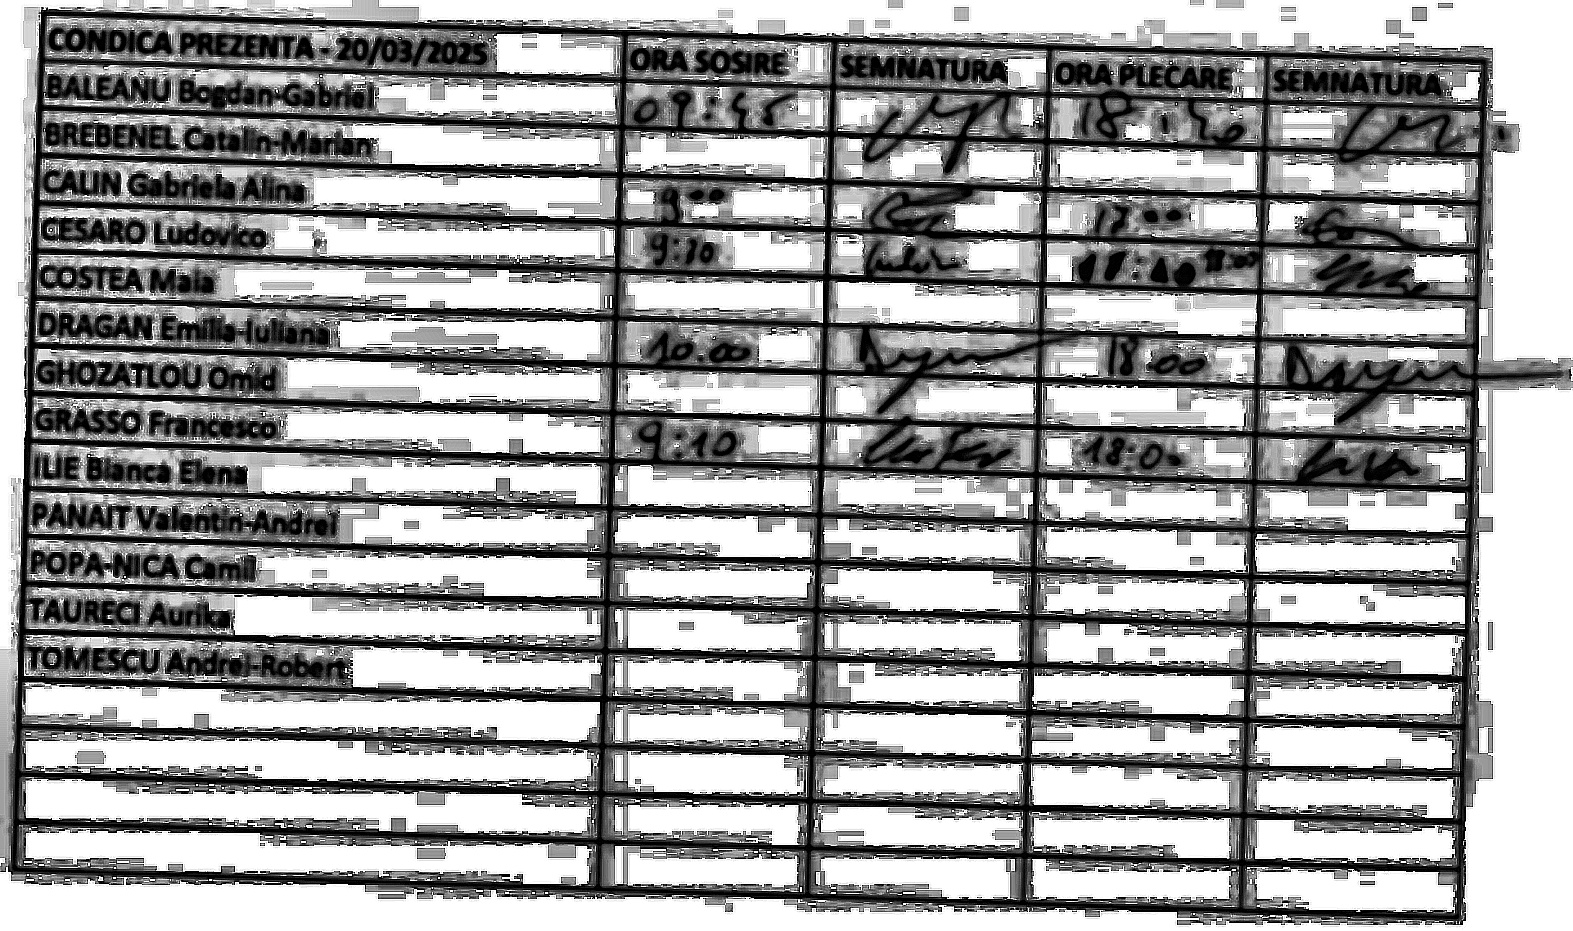 CONDICA PREZENTA - 20/03/2025 ORA SOSIRE SEMNATURA ORA PLECARE SEMNATURA
BALEANU Bogdan-Gabriel 09:45 18:40
BREBENEL Catalin-Marian
CALIN Gabriela Alina 9:00 17:00
CESARO Ludovico 9:10 18:00
COSTEA Maia
DRAGAN Emilia-Iuliana 10.00 18:00
GHOZATLOU Omid
GRASSO Francesco 9:10 18:00
ILIE Bianca Elena
PANAIT Valentin-Andrei
POPA-NICA Camil
TAURECI Aurika
TOMESCU Andrei-Robert